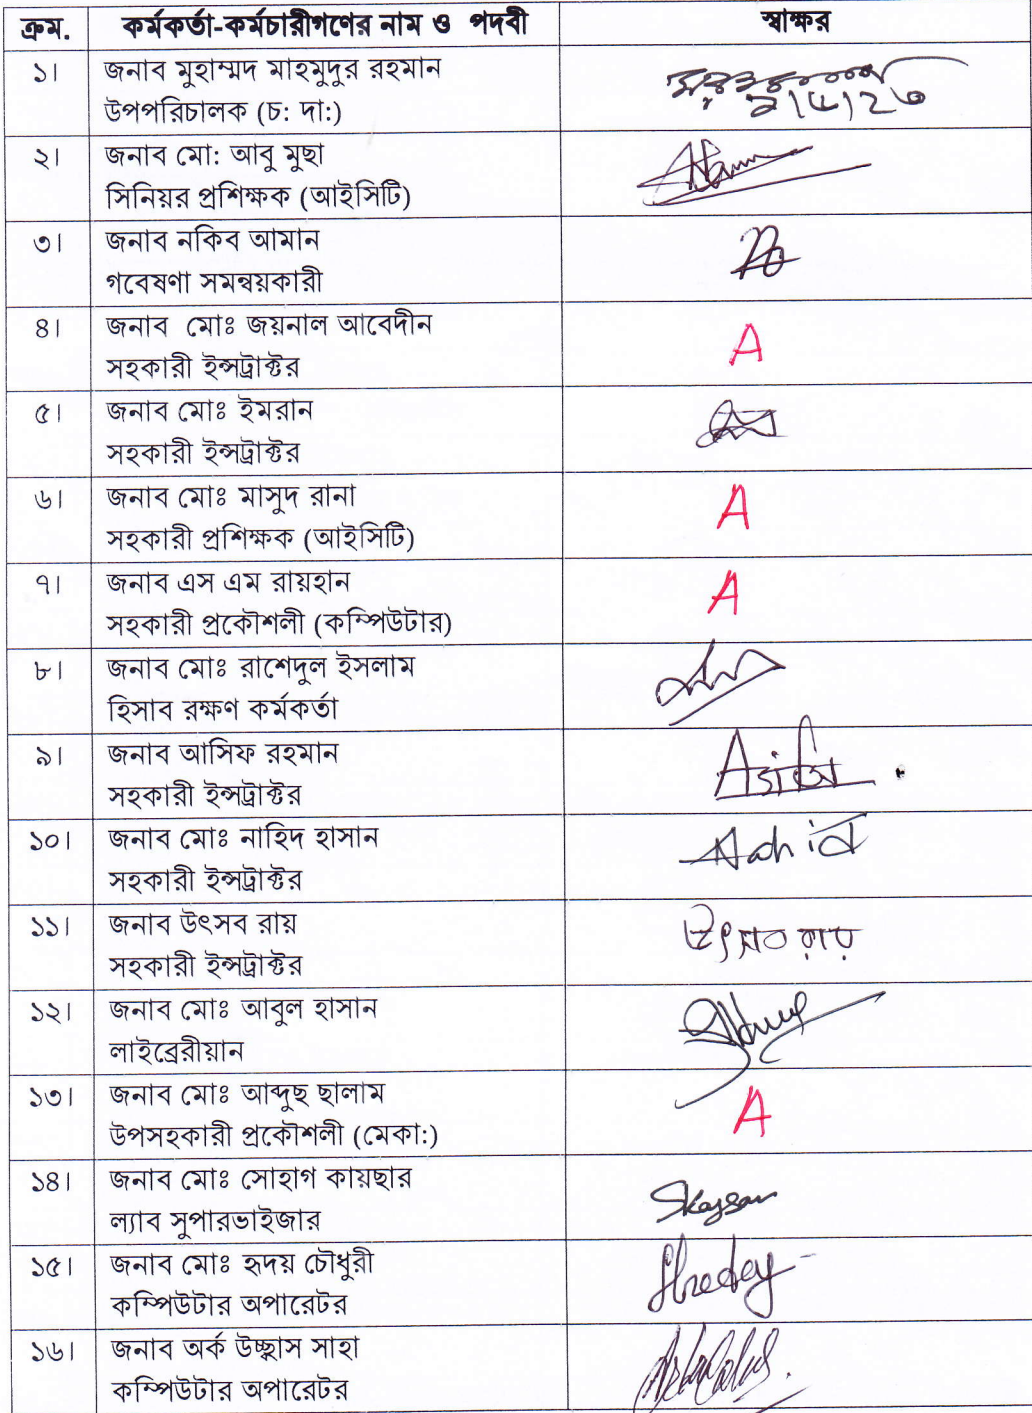 ক্রম. কর্মকর্তা-কর্মচারীগণের নাম ও পদবী স্বাক্ষর
১। জনাব মুহাম্মদ মাহমুদুর রহমান
উপপরিচালক (চ: দা:)
২। জনাব মো: আবু মুছা
সিনিয়র প্রশিক্ষক (আইসিটি)
৩। জনাব নকিব আমান
গবেষণা সমন্বয়কারী
৪। জনাব মোঃ জয়নাল আবেদীন A
সহকারী ইন্সট্রাক্টর
৫। জনাব মোঃ ইমরান
সহকারী ইন্সট্রাক্টর
৬। জনাব মোঃ মাসুদ রানা A
সহকারী প্রশিক্ষক (আইসিটি)
৭। জনাব এস এম রায়হান A
সহকারী প্রকৌশলী (কম্পিউটার)
৮। জনাব মোঃ রাশেদুল ইসলাম
হিসাব রক্ষণ কর্মকর্তা
৯। জনাব আসিফ রহমান
সহকারী ইন্সট্রাক্টর
১০। জনাব মোঃ নাহিদ হাসান Nahid
সহকারী ইন্সট্রাক্টর
১১। জনাব উৎসব রায় উৎসব রায়
সহকারী ইন্সট্রাক্টর
১২। জনাব মোঃ আবুল হাসান
লাইব্রেরীয়ান
১৩। জনাব মোঃ আব্দুছ ছালাম A
উপসহকারী প্রকৌশলী (মেকা:)
১৪। জনাব মোঃ সোহাগ কায়ছার
ল্যাব সুপারভাইজার
১৫। জনাব মোঃ হৃদয় চৌধুরী Hredoy
কম্পিউটার অপারেটর
১৬। জনাব অর্ক উচ্ছ্বাস সাহা
কম্পিউটার অপারেটর